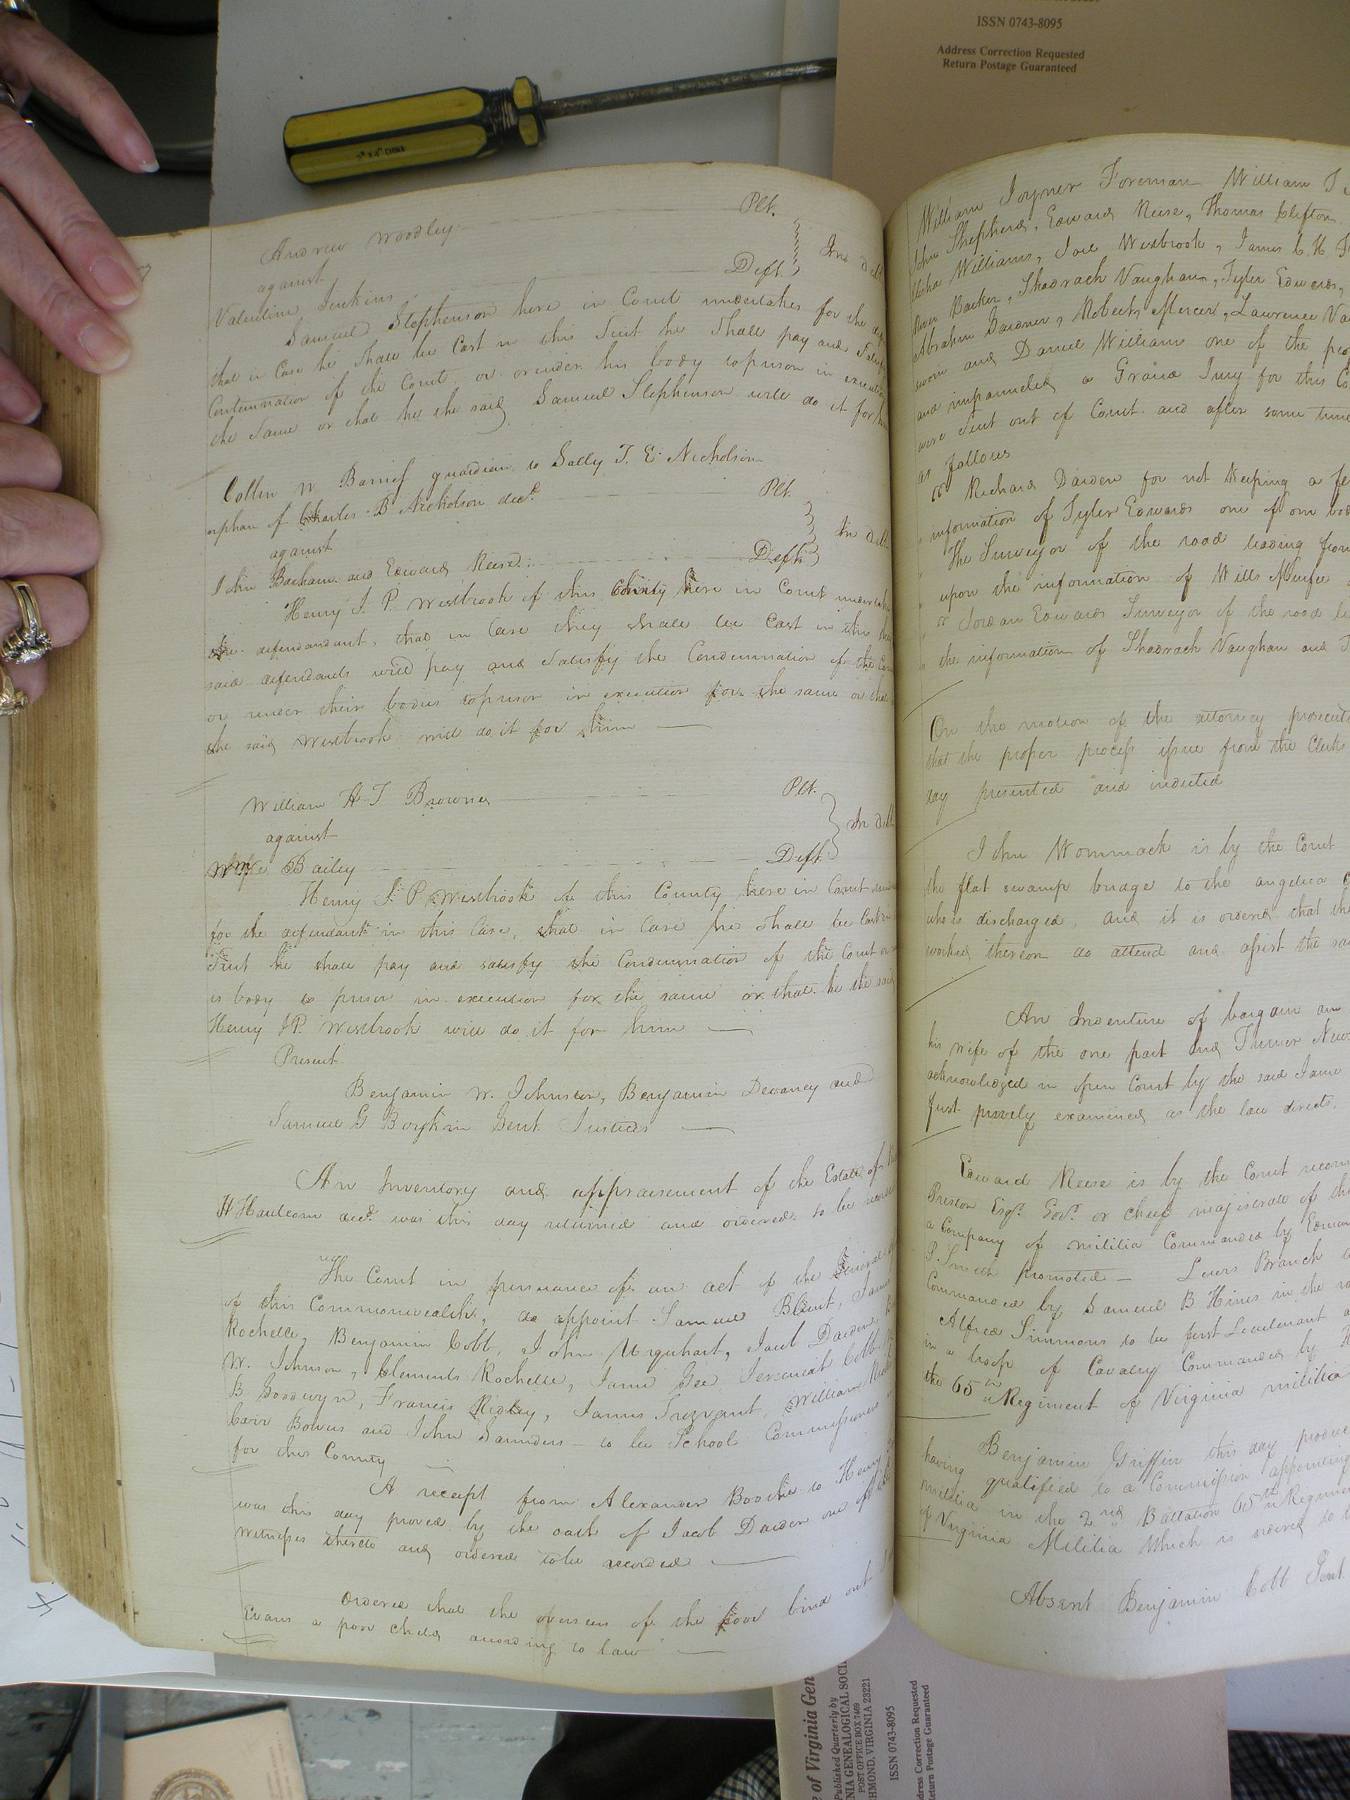 ISSN 0743-8095
Address Correction Requested
Return Postage Guaranteed
Andrew Woodley Plt.
against
Valentine Jenkins Deft. In Debt
Samuel Stephenson here in Court undertakes for the
that in Case he shall be Cast in this Suit he shall pay and Satisfy
Contemnation of the Court or render his body to prison in execution
the same or that he the said Samuel Stephenson will do it for him
Collin W. Barnes guardian to Sally T. E. Nicholson
orphan of Charles B Nicholson decd. Plt.
against In Debt
John Barham and Edward Reese Defts
Henry J. P. Westbrook of this County here in Court undertakes
the defendant, that in Case they shall be Cast in this
said defendants will pay and Satisfy the Condemnation of the Court
or render their bodies to prison in execution for the same or that
the said Westbrook will do it for him
William H T Browne Plt.
against In Debt
Bailey Deft.
Henry J. P Westbrook of this County here in Court
for the defendant in this Case, that in Case he shall be Cast in
Suit he shall pay and satisfy the Condemnation of the Court or
is body to prison in execution for the same or that he the said
Henry J P. Westbrook will do it for him
Present
Benjamin W. Johnston, Benjamin Devaney and
Samuel G Boykin Gent Justices
An Inventory and appraisement of the Estate of
H decd. was this day returned and ordered to be
The Court in pursuance of an act of the General
of this Commonwealth, do appoint Samuel Blunt,
Rochelle, Benjamin Cobb, John Urquhart, Jacob Darden,
W. Johnson, Clements Rochelle, James Gee Jeremiah Cobb
B Goodwyn, Francis Ridley, James Trezvant, William
Carr Bowers and John Saunders to be School Commissioners
for this County
A receipt from Alexander Boothe to Henry
was this day proved by the oath of Jacob Darden one of the
witnesses thereto and ordered to be recorded
Ordered that the overseers of the poor bind out
Evans a poor child according to law
William Joyner Foreman William T
John Shepherd, Edward Reese, Thomas Clifton
Elisha Williams, Joel Westbrook, James C. H
Barker, Shadrach Vaughan, Tyler Edwards,
Abraham Gardner, Roberts Mercer, Lawrence
sworn and Daniel Williams one of the
and impannelled a Grand Jury for this
were sent out of Court and after some time
as follows
Richard Darden for not keeping a
information of Tyler Edwards one of our
The Surveyor of the road leading from
upon the information of Wills
Jordan Edwards Surveyor of the road
the information of Shadrach Vaughan and
On the motion of the attorney
that the proper process issue from the Clerks
day presented and indicted
John Wommack is by the Court
the flat swamp bridge to the angelica
who is discharged, and it is ordered that the
worked thereon do attend and assist the
An Indenture of bargain
his wife of the one part and Turner
acknowledged in open Court by the said
first privily examined as the law directs.
Edward Reese is by the Court
Preston Esqr. Govr. or chief magistrate of the
a Company of militia Commanded by
P. Smith promoted — Lewis Branch
Commanded by Samuel B Hines in the
Alfred Simmons to be first Lieutenant
in a troop of Cavalry Commanded by
the 65th Regiment of Virginia militia
Benjamin Griffin this day
having qualified to a Commission appointing
militia in the 2nd Battalion 65th Regiment
of Virginia Militia which is ordered to
Absent Benjamin Cobb Gent.
of Virginia Gen
Published Quarterly by
NIA GENEALOGICAL SOCI
POST OFFICE BOX 7469
HMOND, VIRGINIA 23221
ISSN 0743-8095
dress Correction Requested
Return Postage Guaranteed